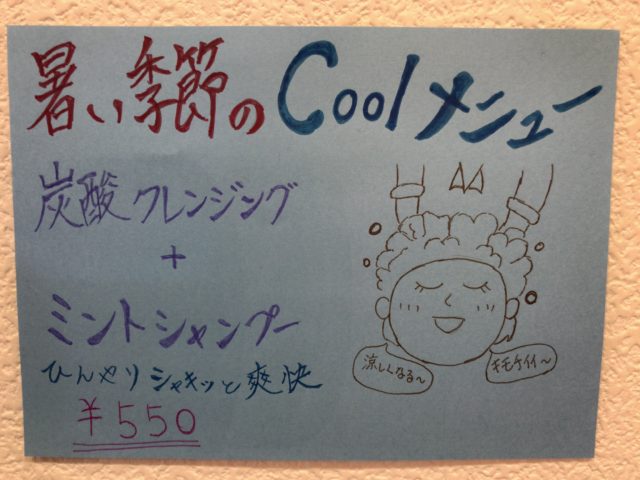 暑い季節のCoolメニュー
炭酸クレンジング
+
ミントシャンプー
ひんやりシャキッと爽快
¥550
涼しくなる〜
キモケイイ〜